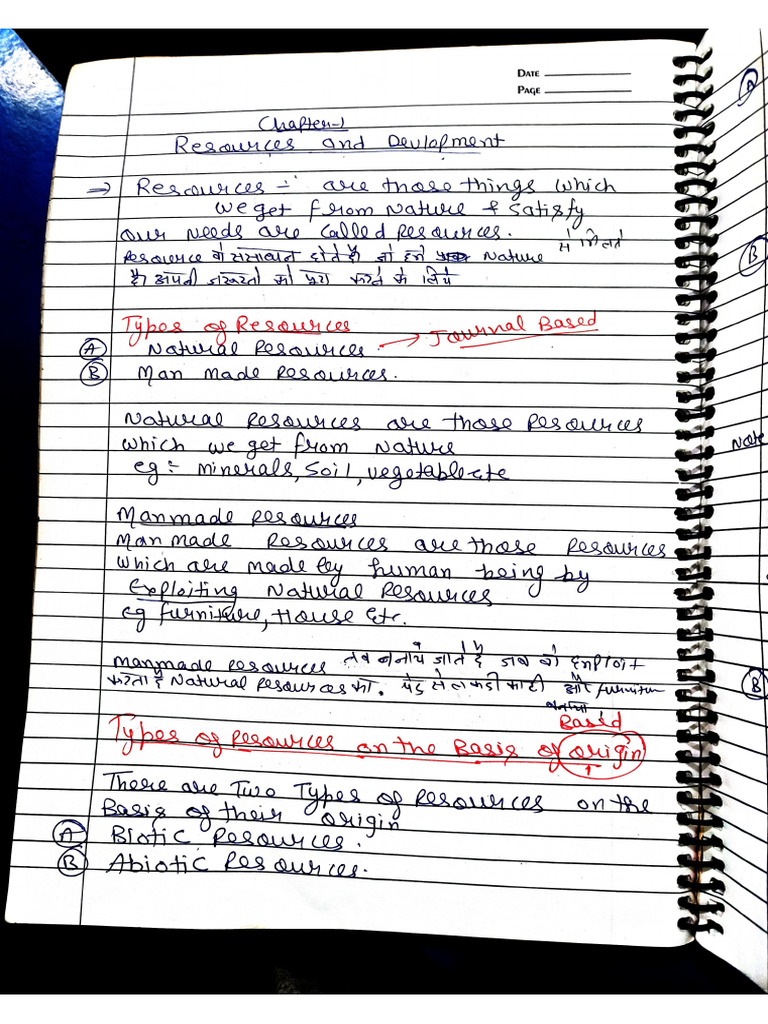 DATE
PAGE
Chapter-1
Resources and Devlopment
→ Resources :- are those things which
we get from Nature & Satisfy
our Needs are called resources.
Resource वो संसाधन होते है जो हमे Nature से मिलते
है अपनी जरूरतो को पूरा करने के लिये
Types of Resources
(A) Natural Resources. → Journal Based
(B) Man made Resources.
Natural Resources are those Resources
which we get from Nature
eg :- minerals, soil, vegetable etc
Manmade Resources
Man made Resources are those Resources
which are made by human being by
exploiting Natural Resources
eg furniture, House Etc.
manmade resources तब बनाये जाते है जब वो Exploit
करता है Natural Resources को. पेड़ से लकडी काटी और furniture
बनाया
Based
Types of Resources on the Basis of origin
There are Two Types of Resources on the
Basis of their origin
(A) Biotic Resources.
(B) Abiotic Resources.
A
B
Note
B